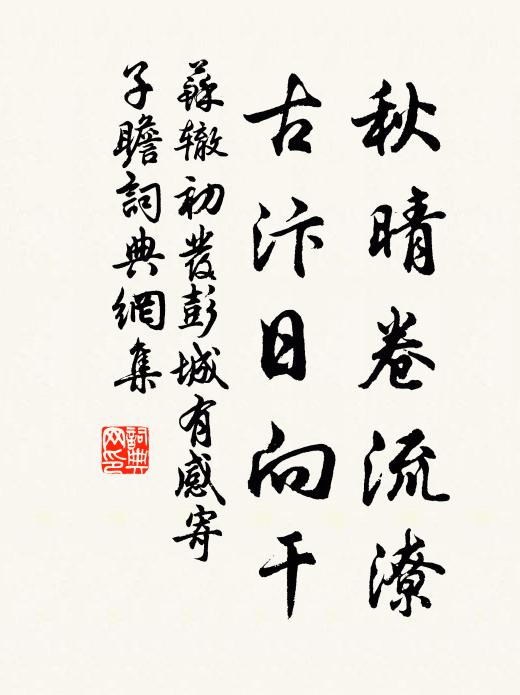 秋晴卷流潦
古汴日向干
蘇轍初發彭城有感寄
子瞻詞典網集
詞典
网印